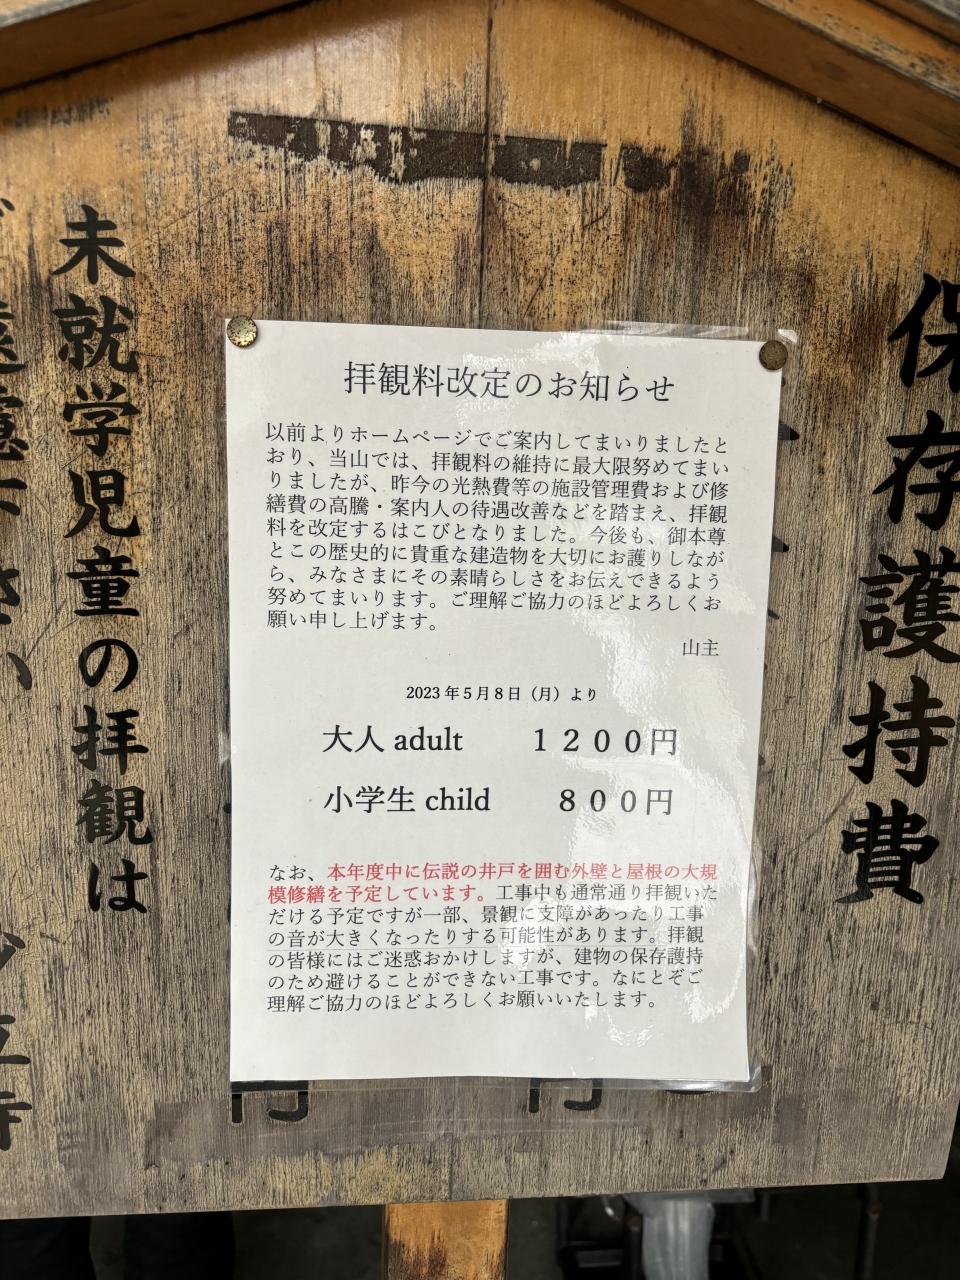 保存護持費
拝観料改定のお知らせ
以前よりホームページでご案内してまいりましたと
おり、当山では、拝観料の維持に最大限努めてまい
りましたが、昨今の光熱費等の施設管理費および修
繕費の高騰・案内人の待遇改善などを踏まえ、拝観
料を改定するはこびとなりました。今後も、御本尊
とこの歴史的に貴重な建造物を大切にお護りしなが
ら、みなさまにその素晴らしさをお伝えできるよう
努めてまいります。ご理解ご協力のほどよろしくお
願い申し上げます。
山主
2023年5月8日（月）より
大人 adult １２００円
小学生 child ８００円
なお、本年度中に伝説の井戸を囲む外壁と屋根の大規
模修繕を予定しています。工事中も通常通り拝観いた
だける予定ですが一部、景観に支障があったり工事
の音が大きくなったりする可能性があります。拝観
の皆様にはご迷惑おかけしますが、建物の保存護持
のため避けることができない工事です。なにとぞご
理解ご協力のほどよろしくお願いいたします。
未就学児童の拝観は